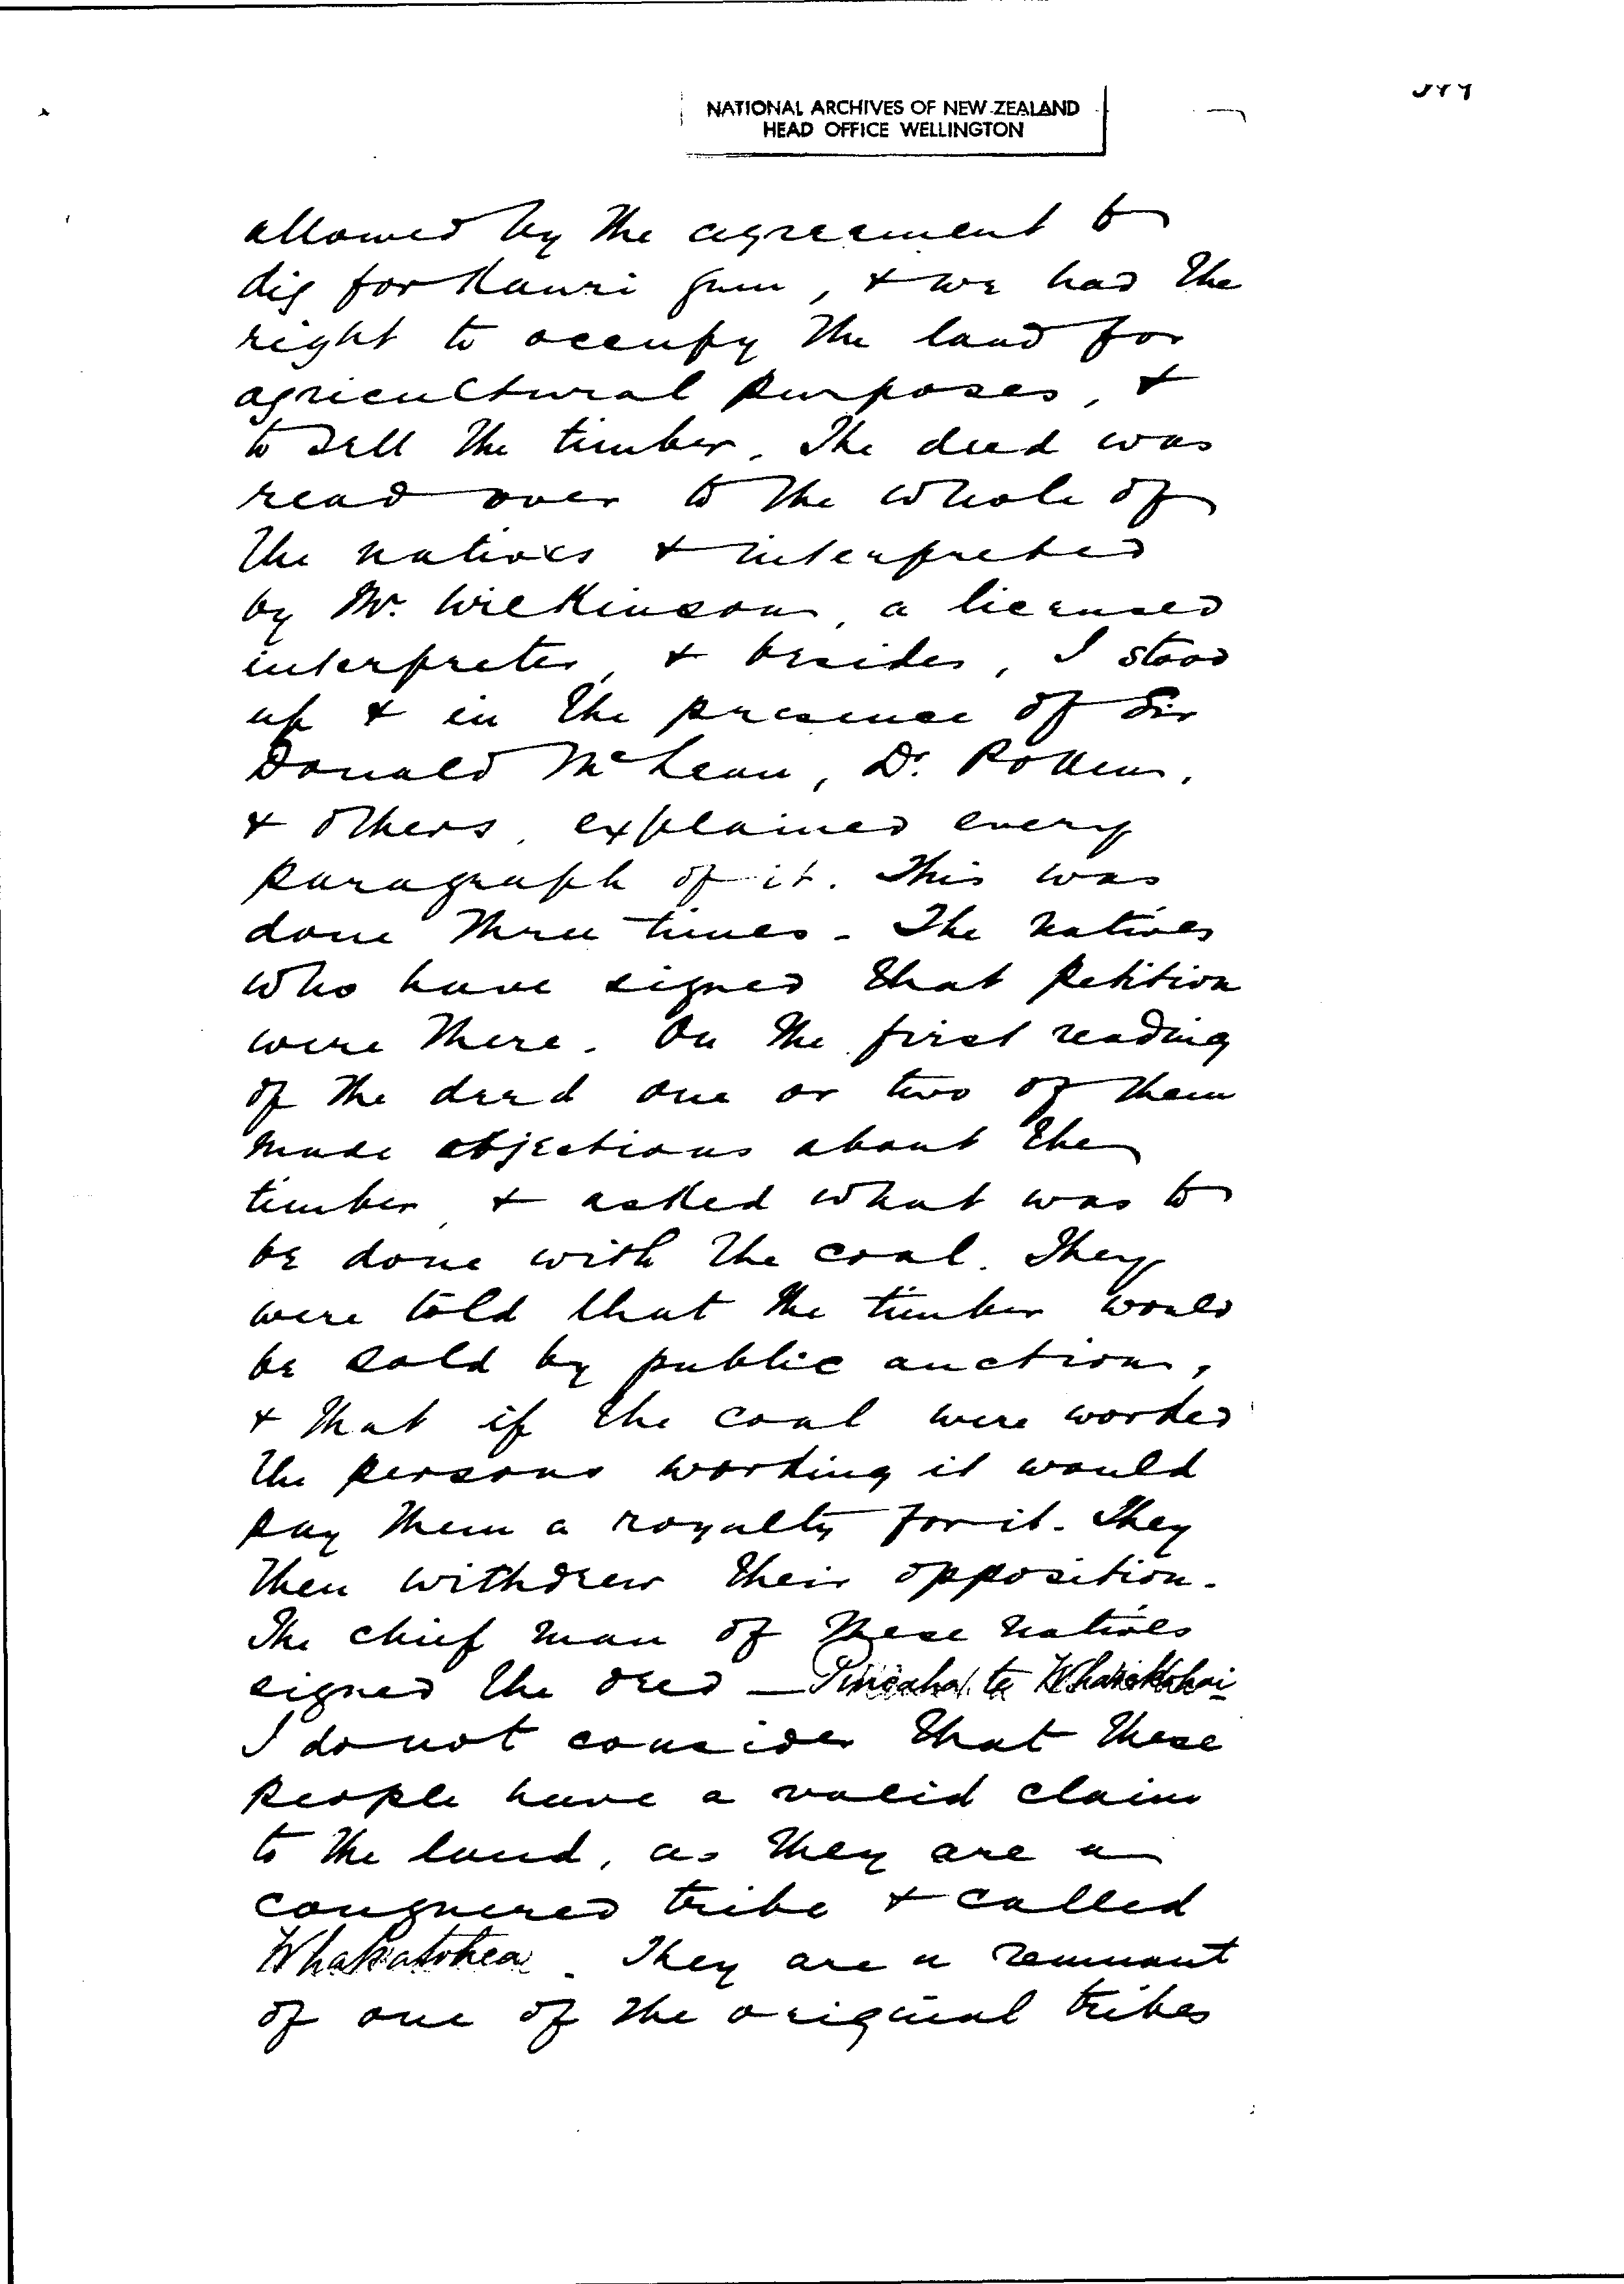 NATIONAL ARCHIVES OF NEW ZEALAND
HEAD OFFICE WELLINGTON
allowed by the agreement to
dig for Kauri gum, & we had the
right to occupy the land for
agricultural purposes, &
to sell the timber. The deed was
read over to the whole of
the natives & interpreted
by Mr. Wilkinson, a licensed
interpreter, & besides, I stood
up & in the presence of Sir
Donald McLean, Dr. Pollen,
& others, explained every
paragraph of it. This was
done three times. The natives
who have signed that petition
were there. On the first reading
of the deed one or two of them
made objections about the
timber, & asked what was to
be done with the coal. They
were told that the timber would
be sold by public auction,
& that if the coal were worked
the persons working it would
pay them a royalty for it. They
then withdrew their opposition.
The chief man of these natives
signed the deed — te
I do not consider that these
people have a valid claim
to the land, as they are a
conquered tribe & called
Whakatohea. They are a remnant
of one of the original tribes